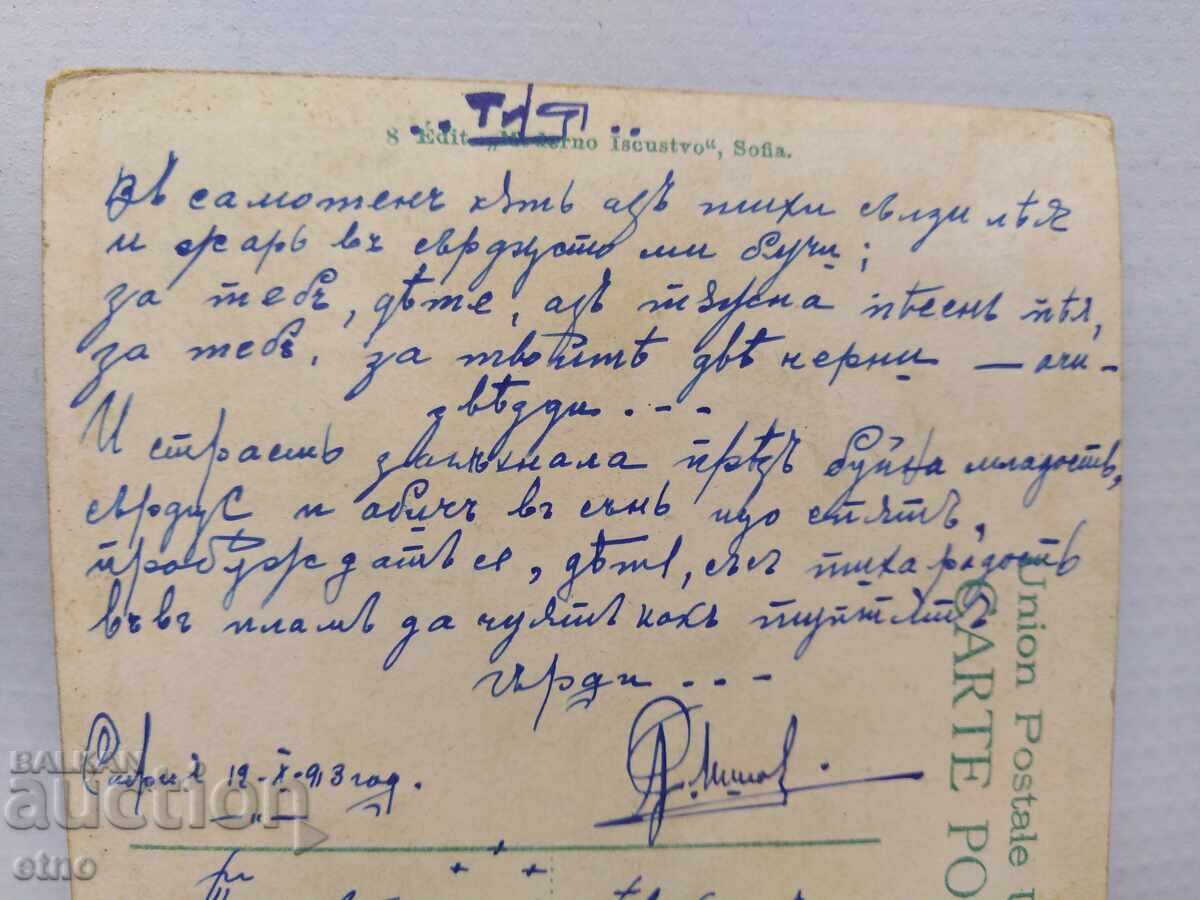 8 Édit. „Moderno Iscustvo“, Sofia.
Въ самотенъ кѫтъ азъ тихи сълзи лѣя
и жаръ въ сърдцето ми бучи;
за тебъ, дѣте, азъ тѫжна пѣсень пѣя,
за тебъ, за твойтѣ двѣ черни — очи-
звѣзди . - -
И страсть заглъхнала прѣзъ буйна младость,
сърдце и обичъ въ сънь що спятъ,
пробуждатъ се, дѣте, съсъ тиха радость
въвъ пламъ да чуятъ какъ туптятъ
гърди - - -
12-X-913 год.
Union Postale
CARTE PO
BALKAN
auction
etno